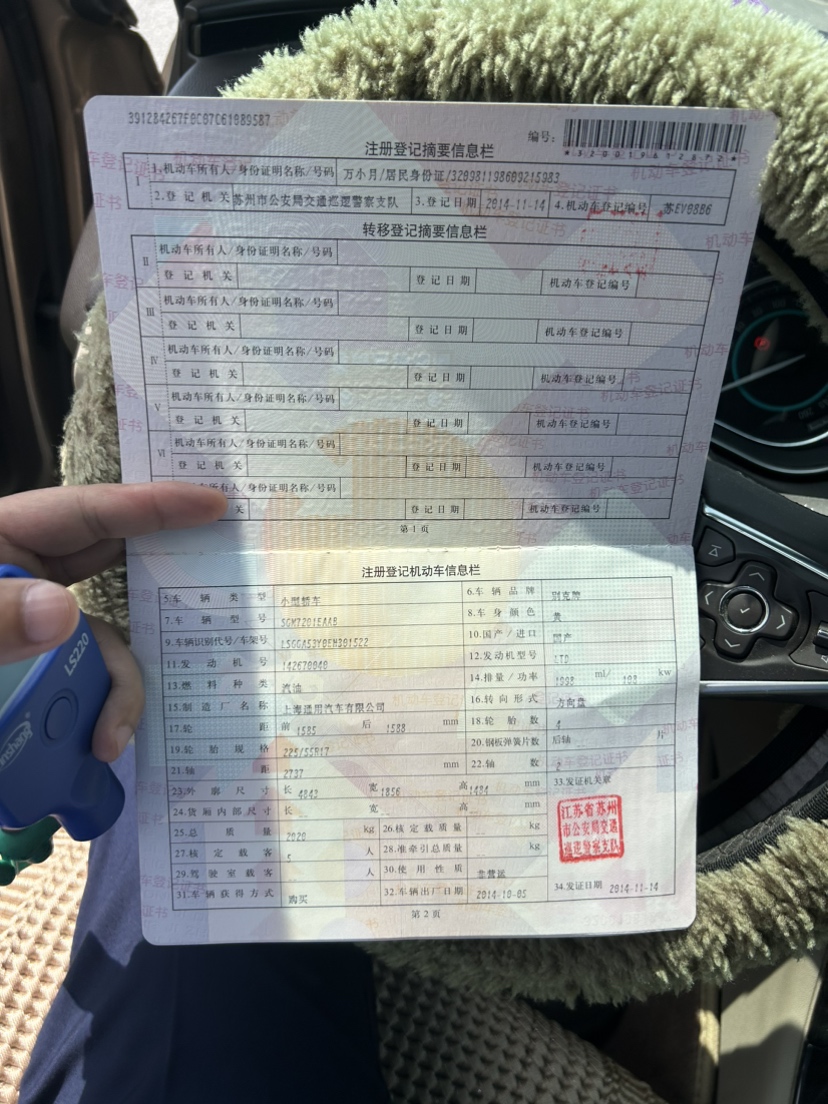 391284267F0C07C61089587
编号：
注册登记摘要信息栏
I 1.机动车所有人/身份证明名称/号码 万小月/居民身份证/320981198609215983
2.登记机关 苏州市公安局交通巡逻警察支队 3.登记日期 2014-11-14 4.机动车登记编号 苏EV08B6
转移登记摘要信息栏
II 机动车所有人/身份证明名称/号码
登记机关 登记日期 机动车登记编号
III 机动车所有人/身份证明名称/号码
登记机关 登记日期 机动车登记编号
IV 机动车所有人/身份证明名称/号码
登记机关 登记日期 机动车登记编号
V 机动车所有人/身份证明名称/号码
登记机关 登记日期 机动车登记编号
VI 机动车所有人/身份证明名称/号码
登记机关 登记日期 机动车登记编号
所有人/身份证明名称/号码
关 登记日期 机动车登记编号
第1页
注册登记机动车信息栏
5.车辆类型 小型轿车 6.车辆品牌 别克牌
7.车辆型号 SGM7201EAAB 8.车身颜色 黄
9.车辆识别代号/车架号 10.国产/进口 国产
11.发动机号 142670040 12.发动机型号 LTD
13.燃料种类 汽油 14.排量/功率 1998 ml/ 108 kw
15.制造厂名称 上海通用汽车有限公司 16.转向形式 方向盘
17.轮距 前 1585 后 1588 mm 18.轮胎数 4
19.轮胎规格 225/55R17 20.钢板弹簧片数 后轴 片
21.轴距 2737 mm 22.轴数 2
23.外廓尺寸 长 4843 宽 1856 高 1484 mm 33.发证机关章
24.货厢内部尺寸 长 宽 高 mm
江苏省苏州市公安局交通巡逻警察支队
25.总质量 2020 kg 26.核定载质量 -- kg
27.核定载客 5 人 28.准牵引总质量 -- kg
29.驾驶室载客 人 30.使用性质 非营运
31.车辆获得方式 购买 32.车辆出厂日期 2014-10-05 34.发证日期 2014-11-14
第2页
LS220